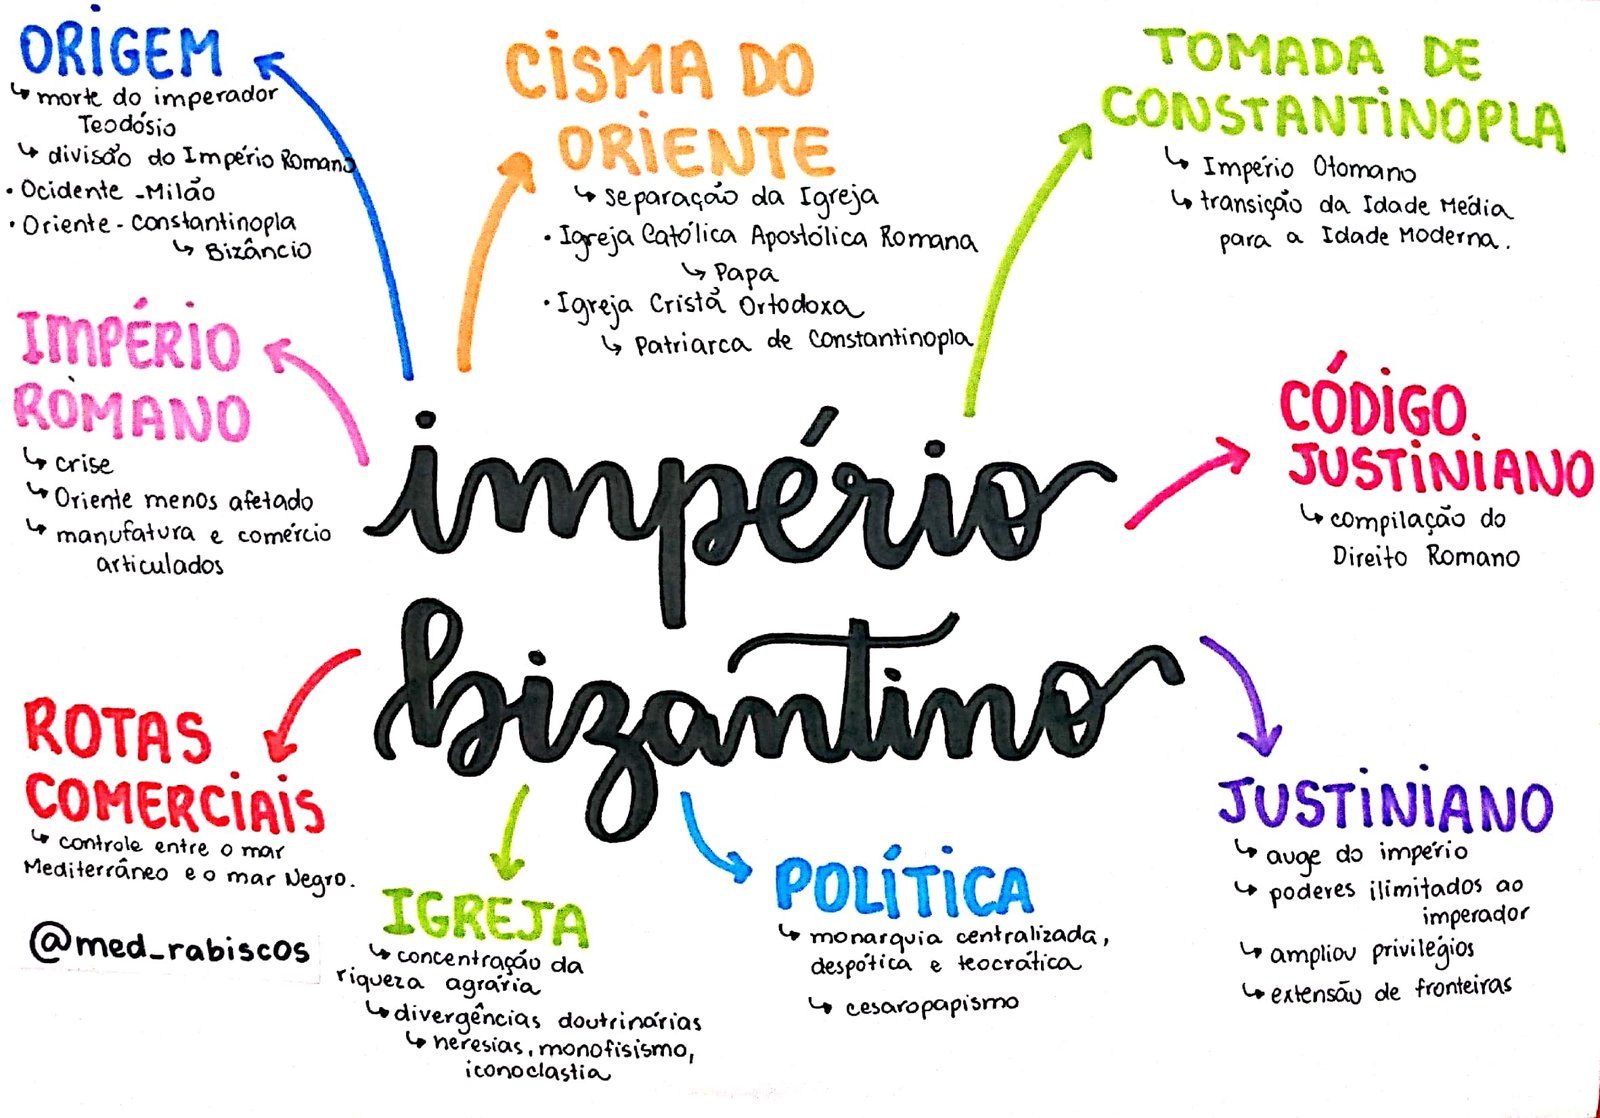 ORIGEM
↳ morte do imperador
Teodósio
↳ divisão do Império Romano
• Ocidente - Milão
• Oriente - Constantinopla
↳ Bizâncio
CISMA DO
ORIENTE
↳ separação da Igreja
• Igreja Católica Apostólica Romana
↳ Papa
• Igreja Cristã Ortodoxa
↳ Patriarca de Constantinopla
TOMADA DE
CONSTANTINOPLA
↳ Império Otomano
↳ transição da Idade Média
para a Idade Moderna.
IMPÉRIO
ROMANO
↳ crise
↳ Oriente menos afetado
↳ manufatura e comércio
articulados
império
bizantino
CÓDIGO
JUSTINIANO
↳ compilação do
Direito Romano
ROTAS
COMERCIAIS
↳ controle entre o mar
Mediterrâneo e o mar Negro.
@med_rabiscos
IGREJA
↳ concentração da
riqueza agrária
↳ divergências doutrinárias
↳ heresias, monofisismo,
iconoclastia
POLÍTICA
↳ monarquia centralizada,
despótica e teocrática
↳ cesaropapismo
JUSTINIANO
↳ auge do império
↳ poderes ilimitados ao
imperador
↳ ampliou privilégios
↳ extensão de fronteiras